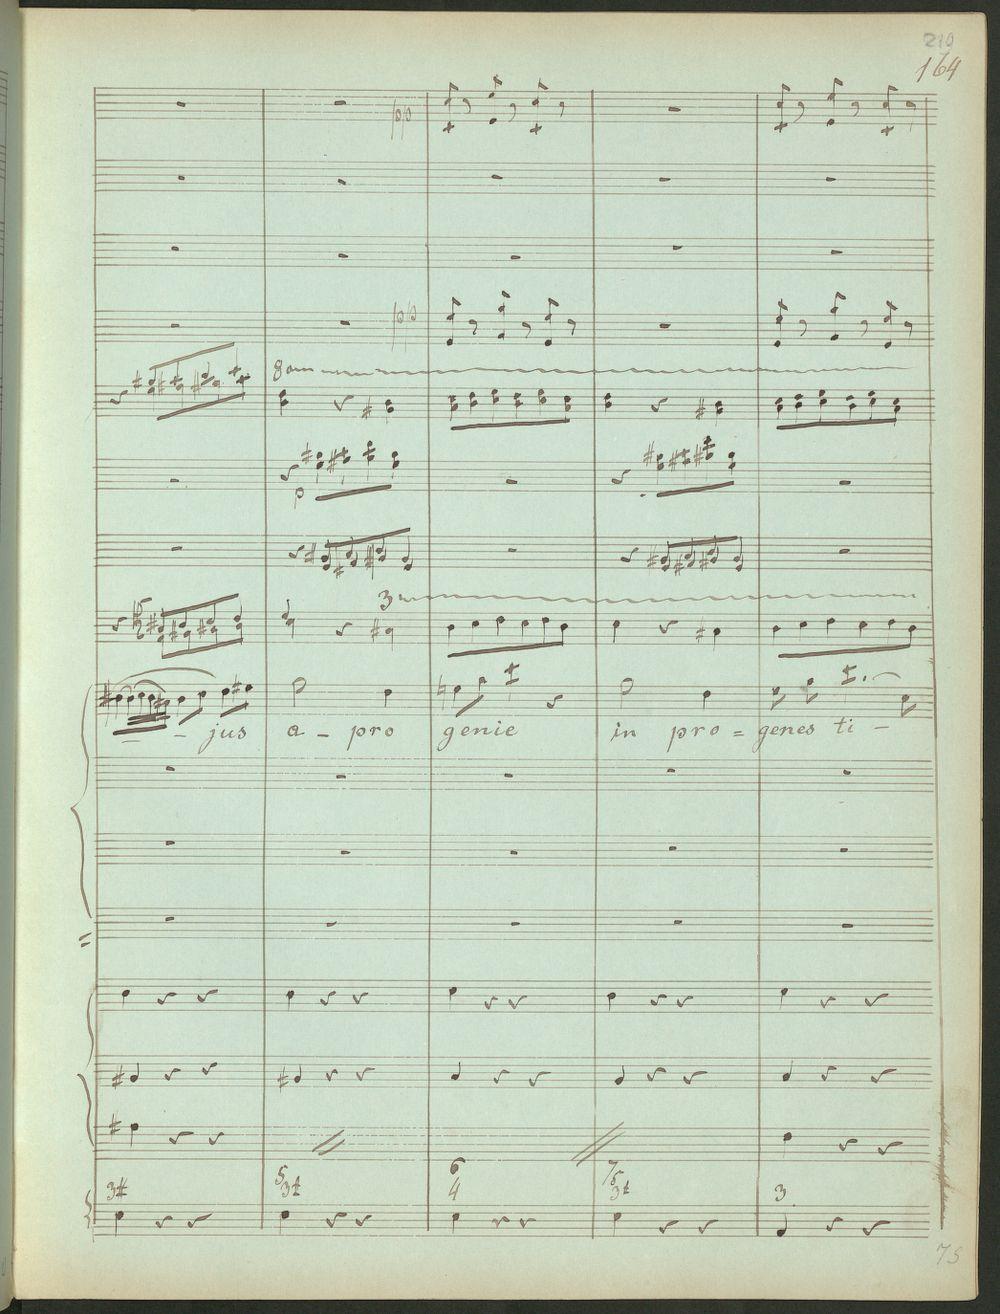 210
164
pp
pp
8a
p
3
- - jus a - pro genie in pro = genes ti -
3# 5 6 7 5
3 4 3 3
75